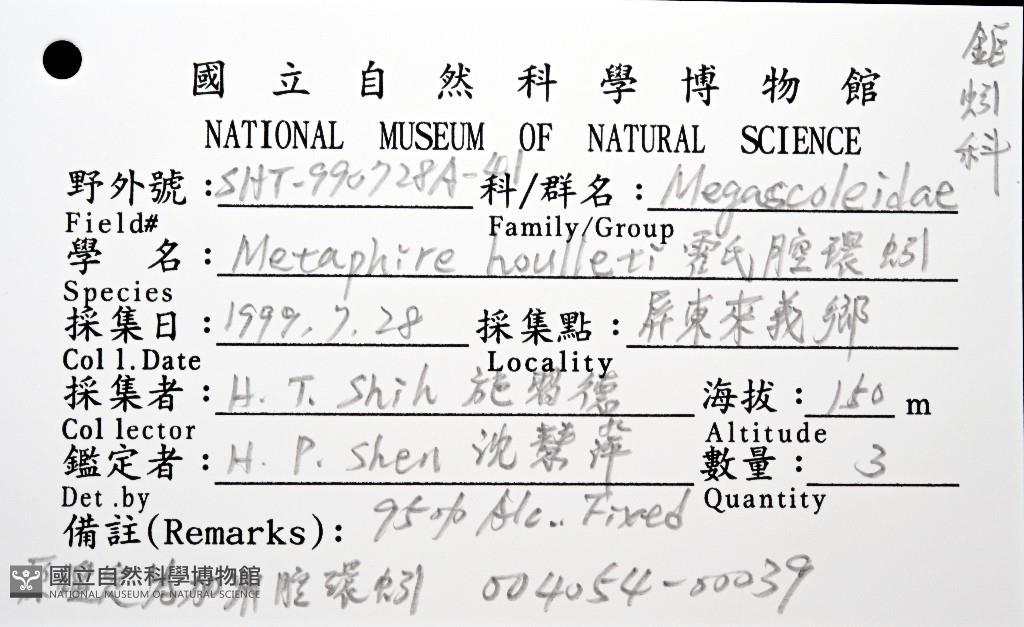 鉅蚓科
國立自然科學博物館
NATIONAL MUSEUM OF NATURAL SCIENCE
野外號:SHT-990728A-401 科/群名:Megascoleidae
Field# Family/Group
學 名:Metaphire houlleti 霍氏腔環蚓
Species
採集日:1999.7.28 採集點:屏東來義鄉
Coll.Date Locality
採集者:H. T. Shih 施習德 海拔:150 m
Collector Altitude
鑑定者:H. P. Shen 沈慧萍 數量:3
Det.by Quantity
備註(Remarks): 95% Alc.. Fixed
腔環蚓 004054-00039
國立自然科學博物館
NATIONAL MUSEUM OF NATURAL SCIENCE